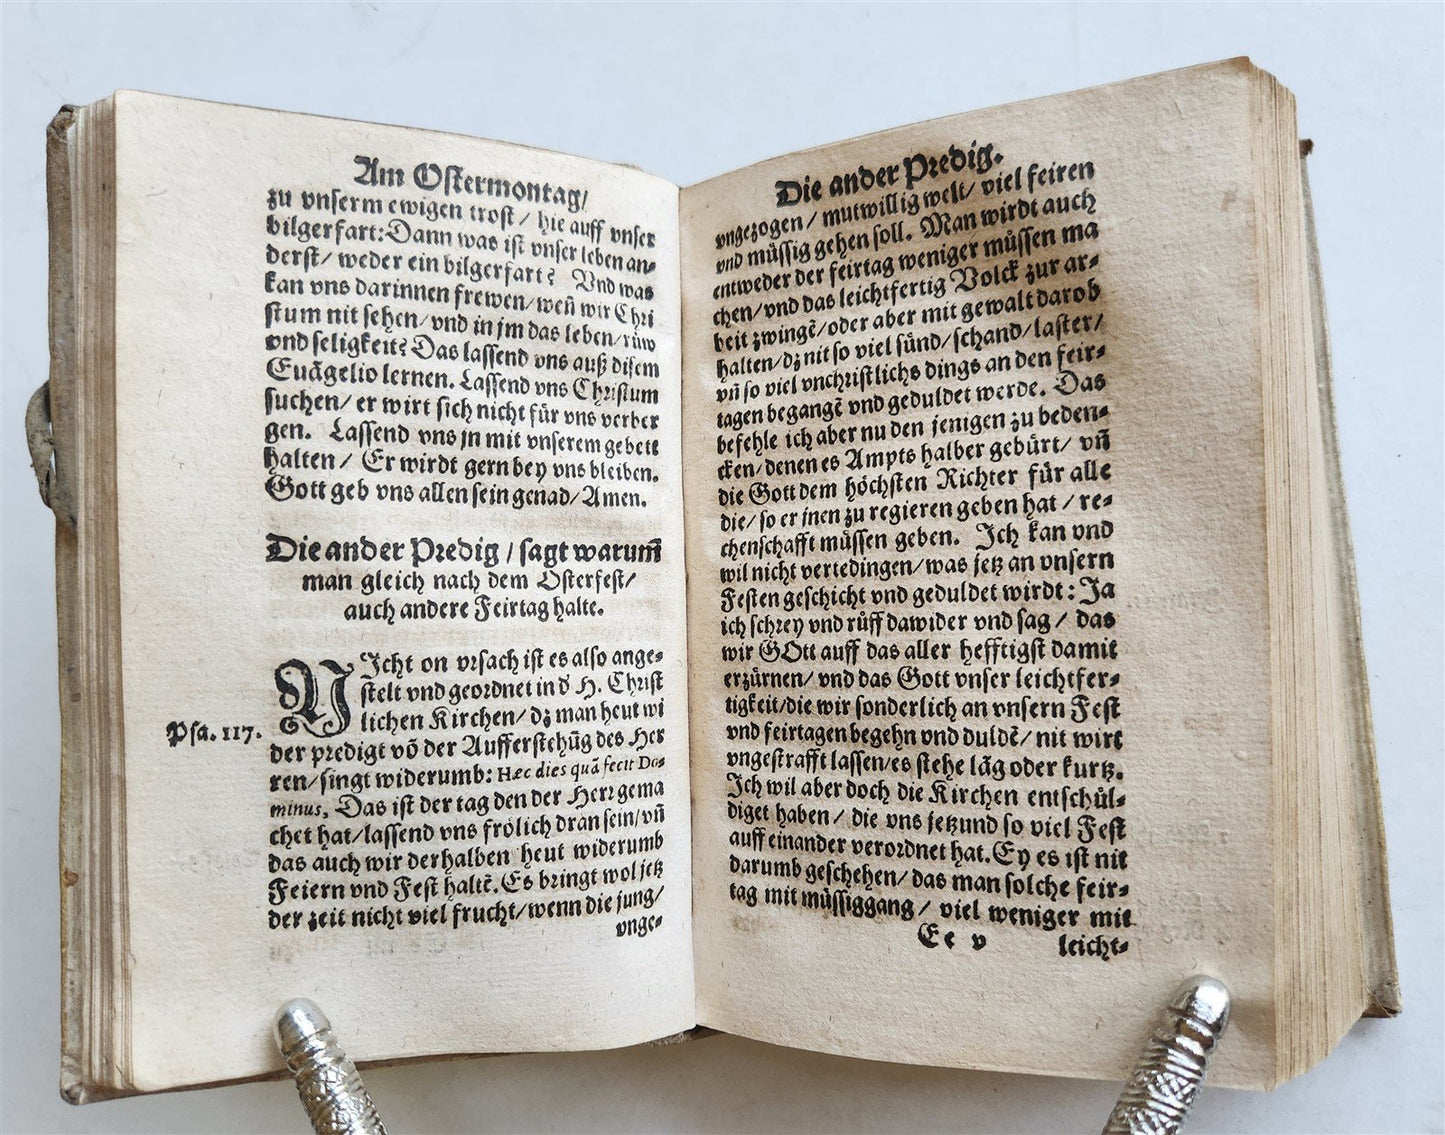 Am Ostermontag/
zu vnserm ewigen trost / hie auff vnser
bilgerfart: Dann was ist vnser leben an⸗
derst/ weder ein bilgerfart? Vnd was
kan vns darinnen frewen/ weñ wir Chri
stum nit sehen/ vnd in jm das leben/ rüw
vnd seligkeit? Das lassend vns auß disem
Euãgelio lernen. Lassend vns Christum
suchen/ er wirt sich nicht für vns verber
gen. Lassend vns jn mit vnserem gebett
halten / Er wirdt gern bey vns bleiben.
Gott geb vns allen sein genad/ Amen.
Die ander Predig / sagt warum̃
man gleich nach dem Osterfest/
auch andere Feirtag halte.
NIcht on vrsach ist es also ange⸗
stelt vnd geordnet in d̕ H. Christ
lichen Kirchen/ dz man heut wi
Psa. 117.
der predigt võ der Aufferstehũg des Her
ren/ singt widerumb: Hæc dies quã fecit Do⸗
minus. Das ist der tag den der Herr gema
chet hat/ lassend vns frölich dran sein/ vñ
das auch wir derhalben heut widerumb
Feiern vnd Fest haltẽ. Es bringt wol jetz
der zeit nicht viel frucht/ wenn die jung/
vnge⸗
Die ander Predig.
vngezogen / mutwillig welt/ viel feiren
vnd müssig gehen soll. Man wirdt auch
entweder der feirtag weniger müssen ma
chen/ vnd das leichtfertig Volck zur ar⸗
beit zwingẽ/ oder aber mit gewalt darob
halten/ dz nit so viel sünd/ schand/ laster/
vñ so viel vnchristlichs dings an den feir⸗
tagen begangẽ vnd geduldet werde. Das
befehle ich aber nu den jenigen zu beden⸗
cken/ denen es Ampts halber gebürt/ vñ
die Gott dem höchsten Richter für alle
die/ so er jnen zu regieren geben hat / re⸗
chenschafft müssen geben. Ich kan vnd
wil nicht vertedingen/ was jetz an vnsern
Festen geschicht vnd geduldet wirdt: Ja
ich schrey vnd rüff dawider vnd sag / das
wir GOtt auff das aller hefftigst damit
erzürnen/ vnd das Gott vnser leichtfer⸗
tigkeit/ die wir sonderlich an vnsern Fest
vnd feirtagen begehn vnd duldẽ/ nit wirt
vngestrafft lassen/ es stehe lãg oder kurtz.
Ich wil aber doch die Kirchen entschül⸗
diget haben / die vns jetzund so viel Fest
auff einander verordnet hat. Ey es ist nit
darumb geschehen/ das man solche feir⸗
tag mit müssiggang / viel weniger mit
Ee v leicht⸗